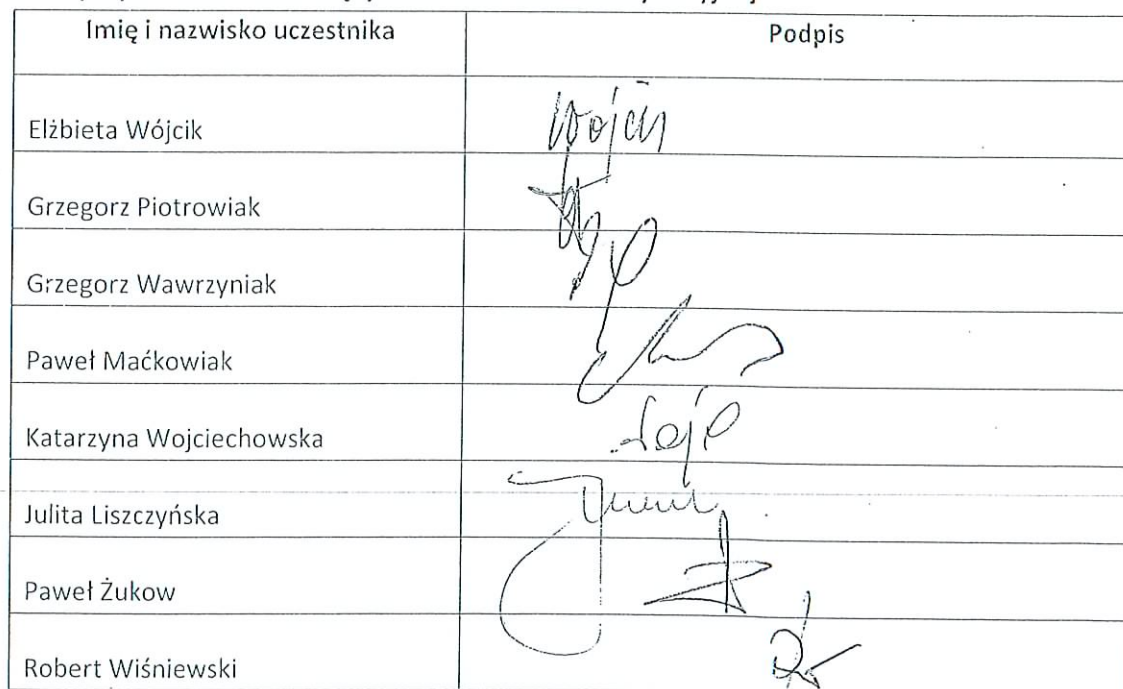 Imię i nazwisko uczestnika Podpis
Elżbieta Wójcik Wójcik
Grzegorz Piotrowiak
Grzegorz Wawrzyniak
Paweł Maćkowiak
Katarzyna Wojciechowska
Julita Liszczyńska
Paweł Żukow
Robert Wiśniewski